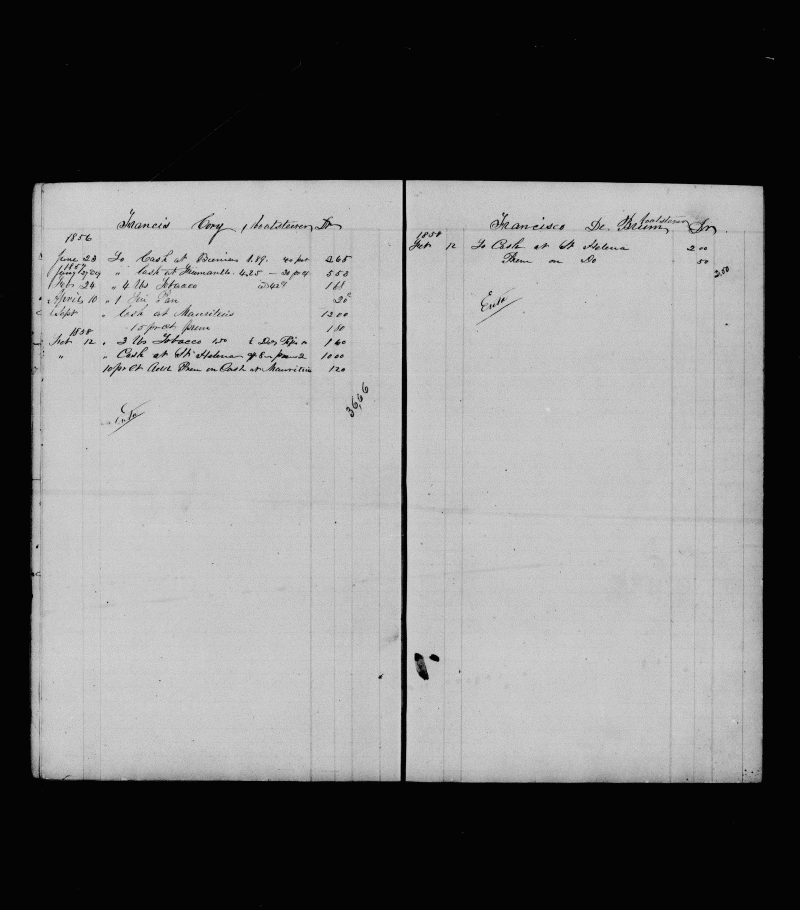 Francis Cory Boatsteerer Dr
1856
June 23 To Cash at 1.89. 40 pct 265
1857
" Cash at Fremantle 4.25 - 30 pct 553
Feb 24 " 4 lbs Tobacco 168
April 10 " 1 Pan 20
Sept " Cash at Mauritius 1200
15 pr ct prem 180
1858
Feb 12 " 3 lbs Tobacco 160
" " Cash at St Helena 8 prem 2 1000
10 pr ct Add Prem on Cash at Mauritius 120
36,66
Entd
Francisco De Brum Boatsteerer Dr
1858
Feb 12 To Cash at St Helena 2 00
Prem on Do 50
2,50
Entd